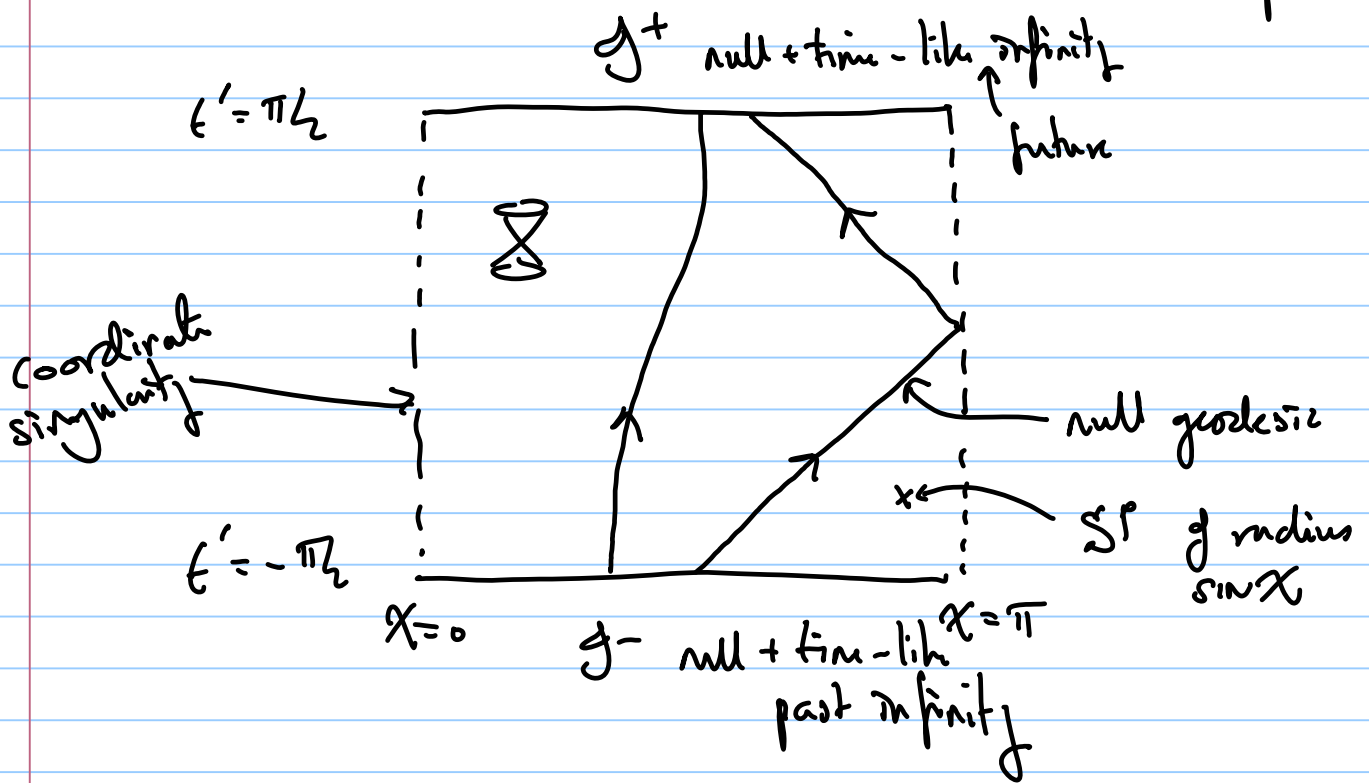 𝓘⁺ null + time-like infinity
t' = π/2
future
coordinate
singularity
null geodesic
of radius
sin χ
t' = -π/2
χ=0
χ=π
𝓘⁻ null + time-like
past infinity